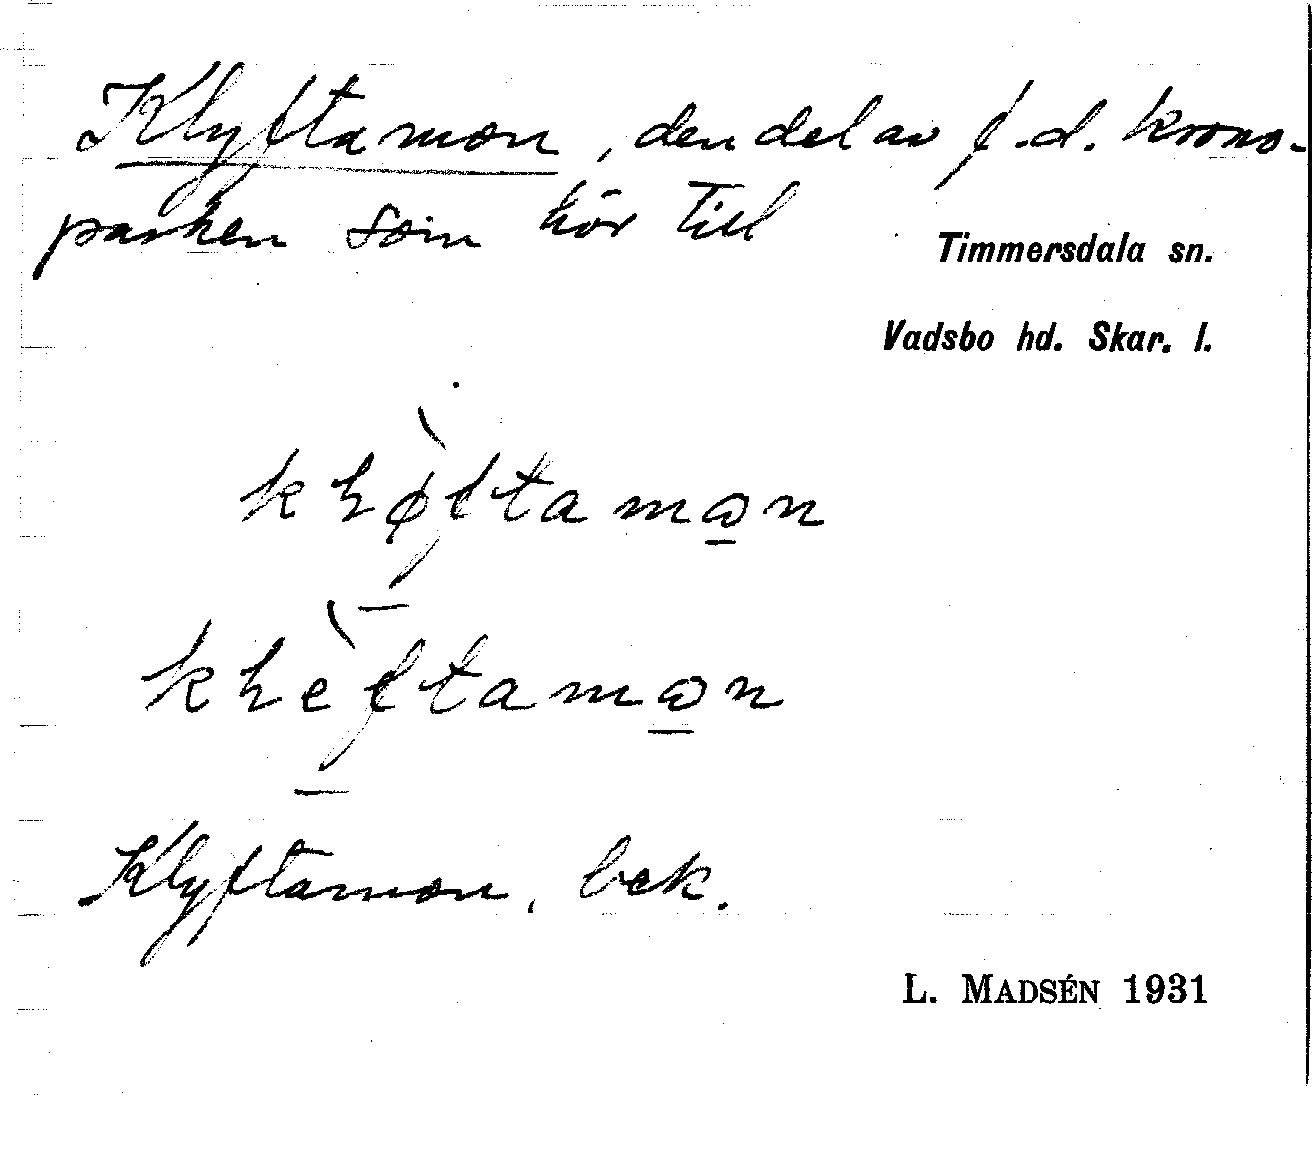 Klyftamon, den del av f.d. krono-
parken som hör till
Timmersdala sn.
Vadsbo hd. Skar. l.
Klyftamon, bek.
L. MADSÉN 1931